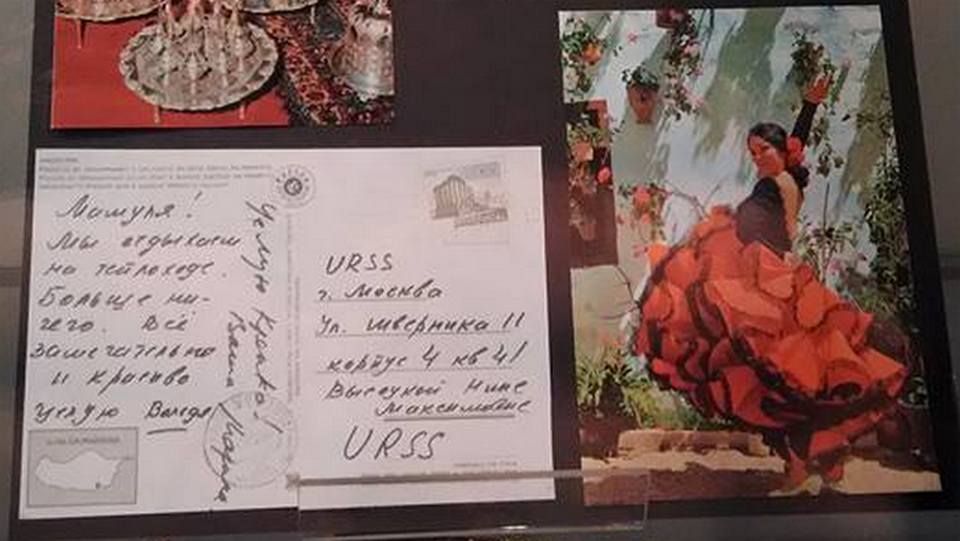 Мамуля!
Мы отдыхаем
на теплоходе.
Больше ни-
чего. Всё
замечательно
и красиво
целую Володя
Целую крепко!
Ваша Марина
URSS
г. Москва
Ул. Шверника 11
корпус 4 кв 41
Высоцкой Нине
Максимовне
URSS